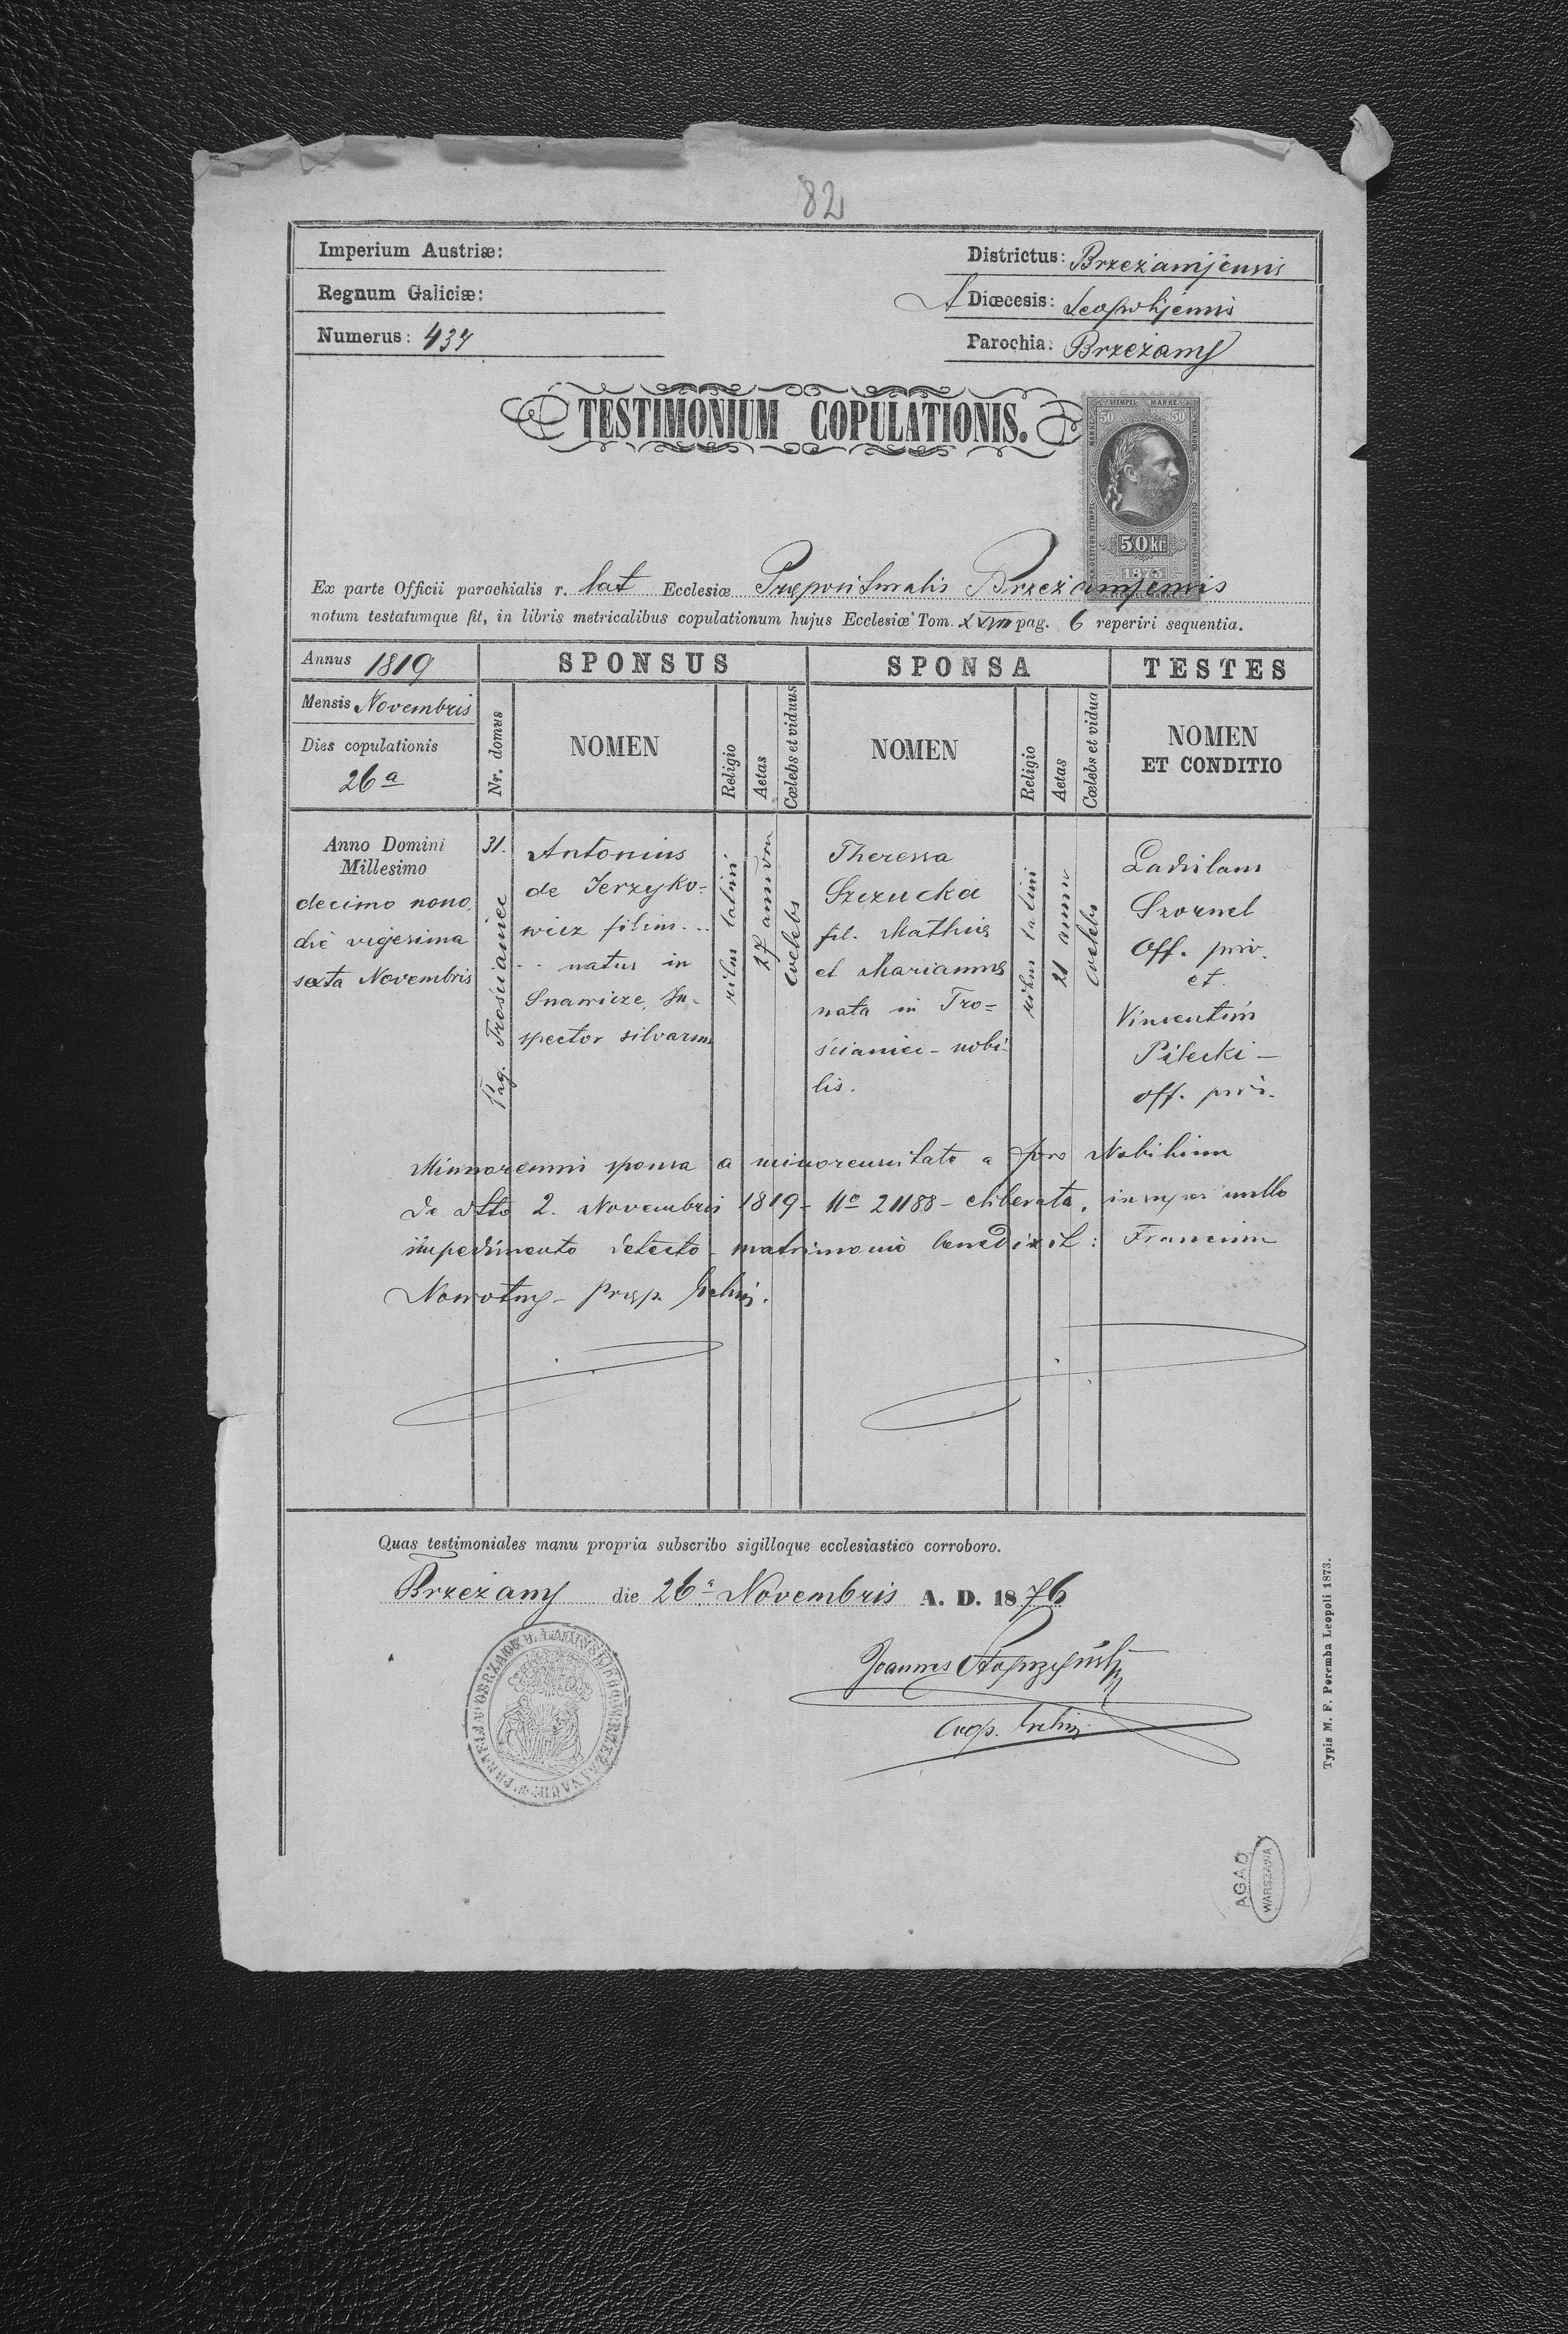 82
Imperium Austriæ:
Regnum Galiciæ:
Numerus: 434
Districtus: Brzeżanjensis
A Diœcesis: Leopoljensis
Parochia: Brzeżany
TESTIMONIUM COPULATIONIS.
STEMPEL MARKE
50 50
50 kr
1873
Ex parte Officii parochialis r. lat Ecclesiæ Præposituralis Brzeżanjensis
notum testatumque fit, in libris metricalibus copulationum hujus Ecclesiæ Tom. XVIII pag. 6 reperiri sequentia.
Annus 1819
Mensis Novembris
Dies copulationis
26a
SPONSUS
SPONSA
TESTES
Nr. domus
NOMEN
Religio
Aetas
Cœlebs et viduus
NOMEN
Religio
Aetas
Cœlebs et vidua
NOMEN
ET CONDITIO
Anno Domini
Millesimo
decimo nono,
die vigesima
sexta Novembris
31.
Pag. Trościaniec
Antonius
de Jerzyko=
wicz filius...
.. natus in
Snawicze, In-
spector silvarum
ritus latini
27 annorum
coelebs
Theressa
Szczucka
fil. Mathiæ
et Mariannæ
nata in Tro=
ścianiec - nobi-
lis.
ritus latini
21 annor
coelebs
Ladislaus
Szornel
Off. priv.
et.
Vincentius
Pilecki -
off. priv.
Minnorenni sponsa a minorennitate a foro Nobilium
de dtto 2. Novembris 1819 - No 21188 - eliberata, insuper nullo
impedimento detecto - matrimonio benedixit: Franciscus
Nowotny - Præp.
Quas testimoniales manu propria subscribo sigilloque ecclesiastico corroboro.
Brzeżany die 26a Novembris A. D. 1876
Joannes
Coop.
Typis M. F. Poremba Leopoli 1873.
AGAD
WARSZAWA